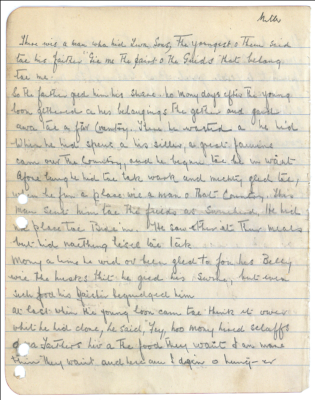 There wis a man wha hid twa Sons, The youngest o them said
tae his father "Gie me the pairt o the Guids that belang
tae me.
So the father gied him his share. nae mony days efter the young
loon githered a his belongings the gither and gaed
awa tae a far Country. There he wasted a he hid
When he hid spent a his siller, a great famine
cam our the Country, and he began tae be in wânt
Afore lang he hid tae tak wark and michty glad tae,
he fun a place wie a man o that Country. This
man sent him tae the fields as Swineherd. He hid
place tae Sleep in. He saw ither at their meals
but hid naething hissel tae tak
Mony a time he wid ov been glad to fou his Belly
wie the husks thit he gied his Swine, but even
sich food his begrudged him
at last when the young loon cam tae think it ower
what he hid done, he said, "Fey, hoo mony hired
o ma Faithers hiv a the food they want & an mair
than they want and here am I deein o hung-er